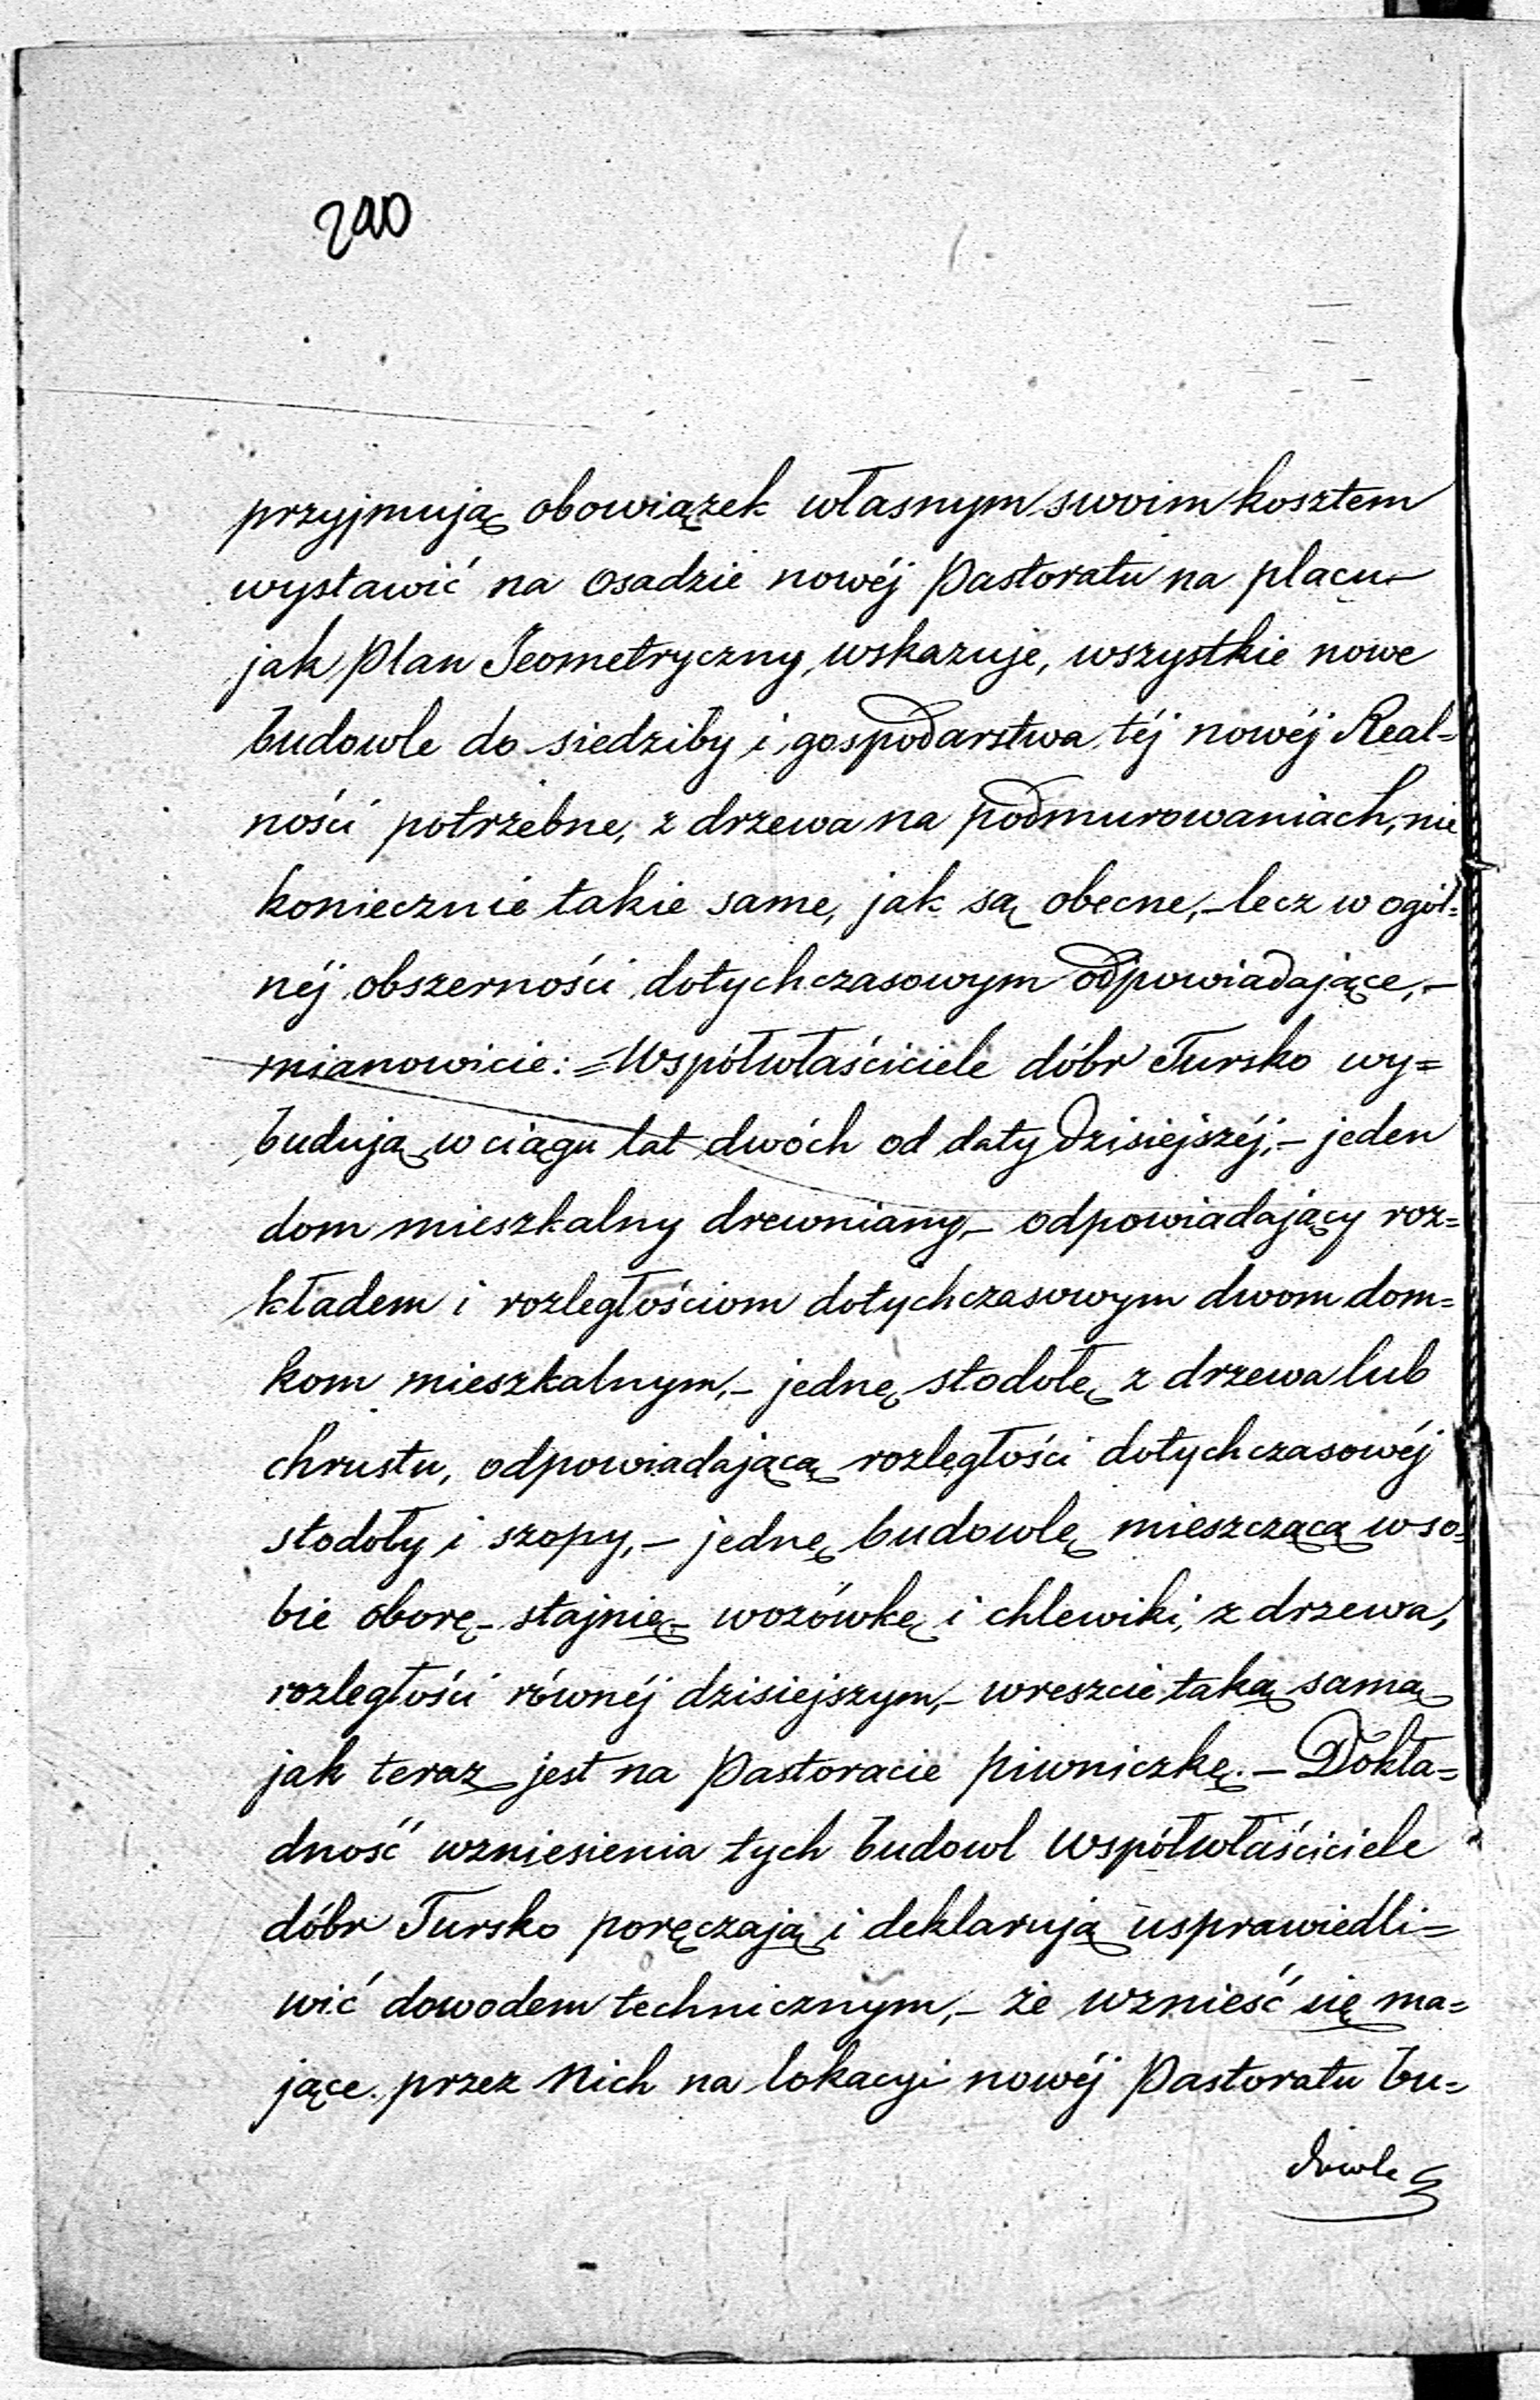 200
przyjmują obowiązek własnym swoim kosztem
wystawić na osadzie nowéj Pastoratu na placu
jak plan Jeometryczny wskazuje, wszystkie nowe
budowle do siedziby i gospodarstwa téj nowéj Real=
ności potrzebne, z drzewa na podmurowaniach, nie
koniecznie takie same, jak są obecne,– lecz w ogól=
néj obszerności dotychczasowym odpowiadające,–
mianowicie: = Współwłaściciele dóbr Tursko wy=
budują w ciągu lat dwóch od daty dzisiejszéj,– jeden
dom mieszkalny drewniany,– odpowiadający roz=
kładem i rozległościom dotychczasowym dwom dom=
kom mieszkalnym,– jednę stodołę z drzewa lub
chrustu, odpowiadającą rozległości dotychczasowéj
stodoły i szopy,– jednę budowlę mieszczącą w so=
bie oborę– stajnię– wozówkę i chlewiki, z drzewa,
rozległości równéj dzisiejszym,– wreszcie taką samą
jak teraz jest na Pastoracie piwniczkę.– Dokła=
dność wzniesienia tych budowl Współwłaściciele
dóbr Tursko poręczają i deklarują usprawiedli=
wić dowodem technicznym,– że wznieść się ma=
jące przez Nich na lokacyi nowéj Pastoratu bu=
dowle